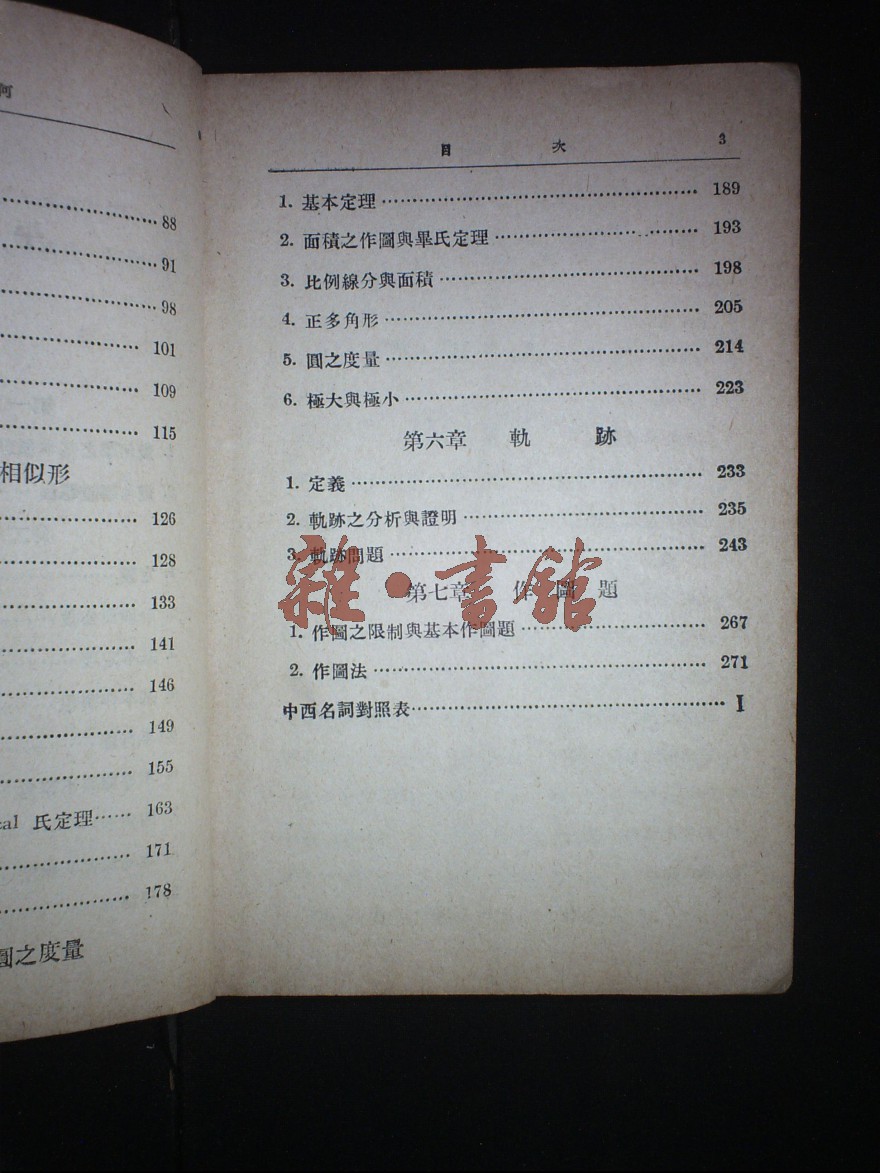 何
88
91
98
101
109
115
相似形
126
128
133
141
146
149
155
cal 氏定理…… 163
171
178
圓之度量
目 次 3
1. 基本定理…………………………………………… 189
2. 面積之作圖與畢氏定理…………………………… 193
3. 比例線分與面積…………………………………… 198
4. 正多角形…………………………………………… 205
5. 圓之度量…………………………………………… 214
6. 極大與極小………………………………………… 223
第六章 軌 跡
1. 定義………………………………………………… 233
2. 軌跡之分析與證明………………………………… 235
3. 軌跡問題…………………………………………… 243
第七章 作 圖 題
1. 作圖之限制與基本作圖題………………………… 267
2. 作圖法……………………………………………… 271
中西名詞對照表……………………………………… I
雜·書館